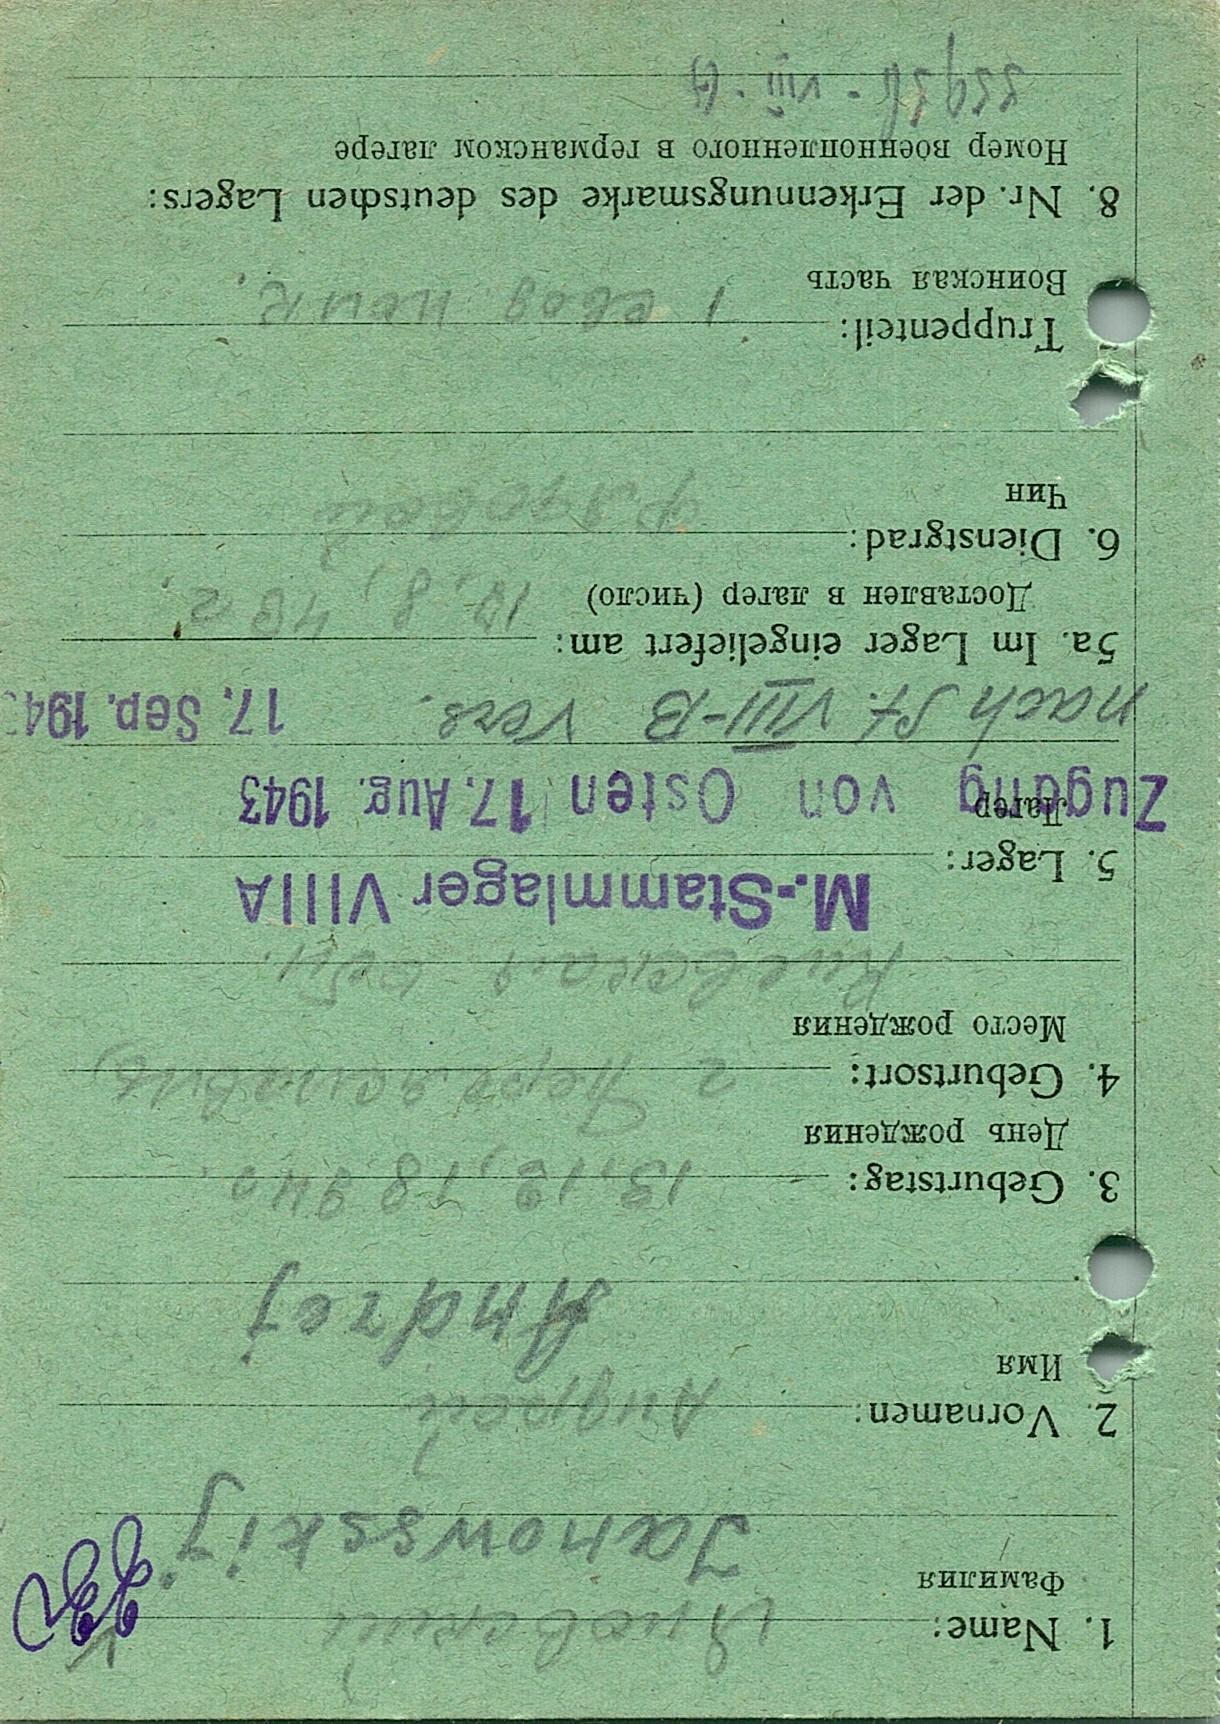 1. Name: Яновский
Фамилия
Janowsskij.
2. Vornamen: Андрей
Имя
Andrej
3. Geburtstag: 13, 12, 1894
День рождения
4. Geburtsort: г
Место рождения
Киевская обл.
M.-Stammlager VIIIA
5. Lager:
Лагерь
Zugang von Osten 17. Aug. 1943
nach St. VIII-B vers. 17. Sep. 194
5a. Im Lager eingeliefert am:
Доставлен в лагер (число) 17, 8, 43 г.
6. Dienstgrad: рядовой
Чин
Truppenteil: 1
Воинская часть
8. Nr. der Erkennungsmarke des deutschen Lagers:
Номер военнопленного в германском лагере
- VIII - A